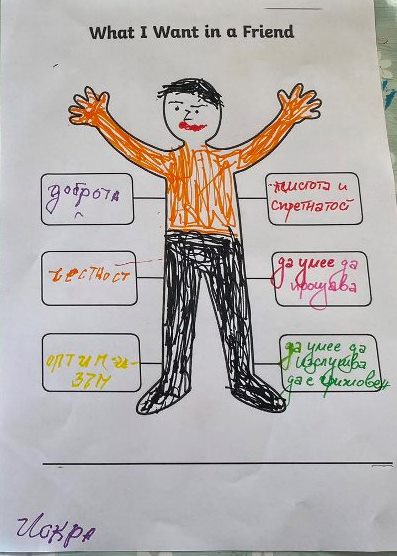 What I Want in a Friend
доброта
чистота и
спретнатост
честност
да умее да
прощава
оптим
изъм
да умее да
изслушва
да е
Искра